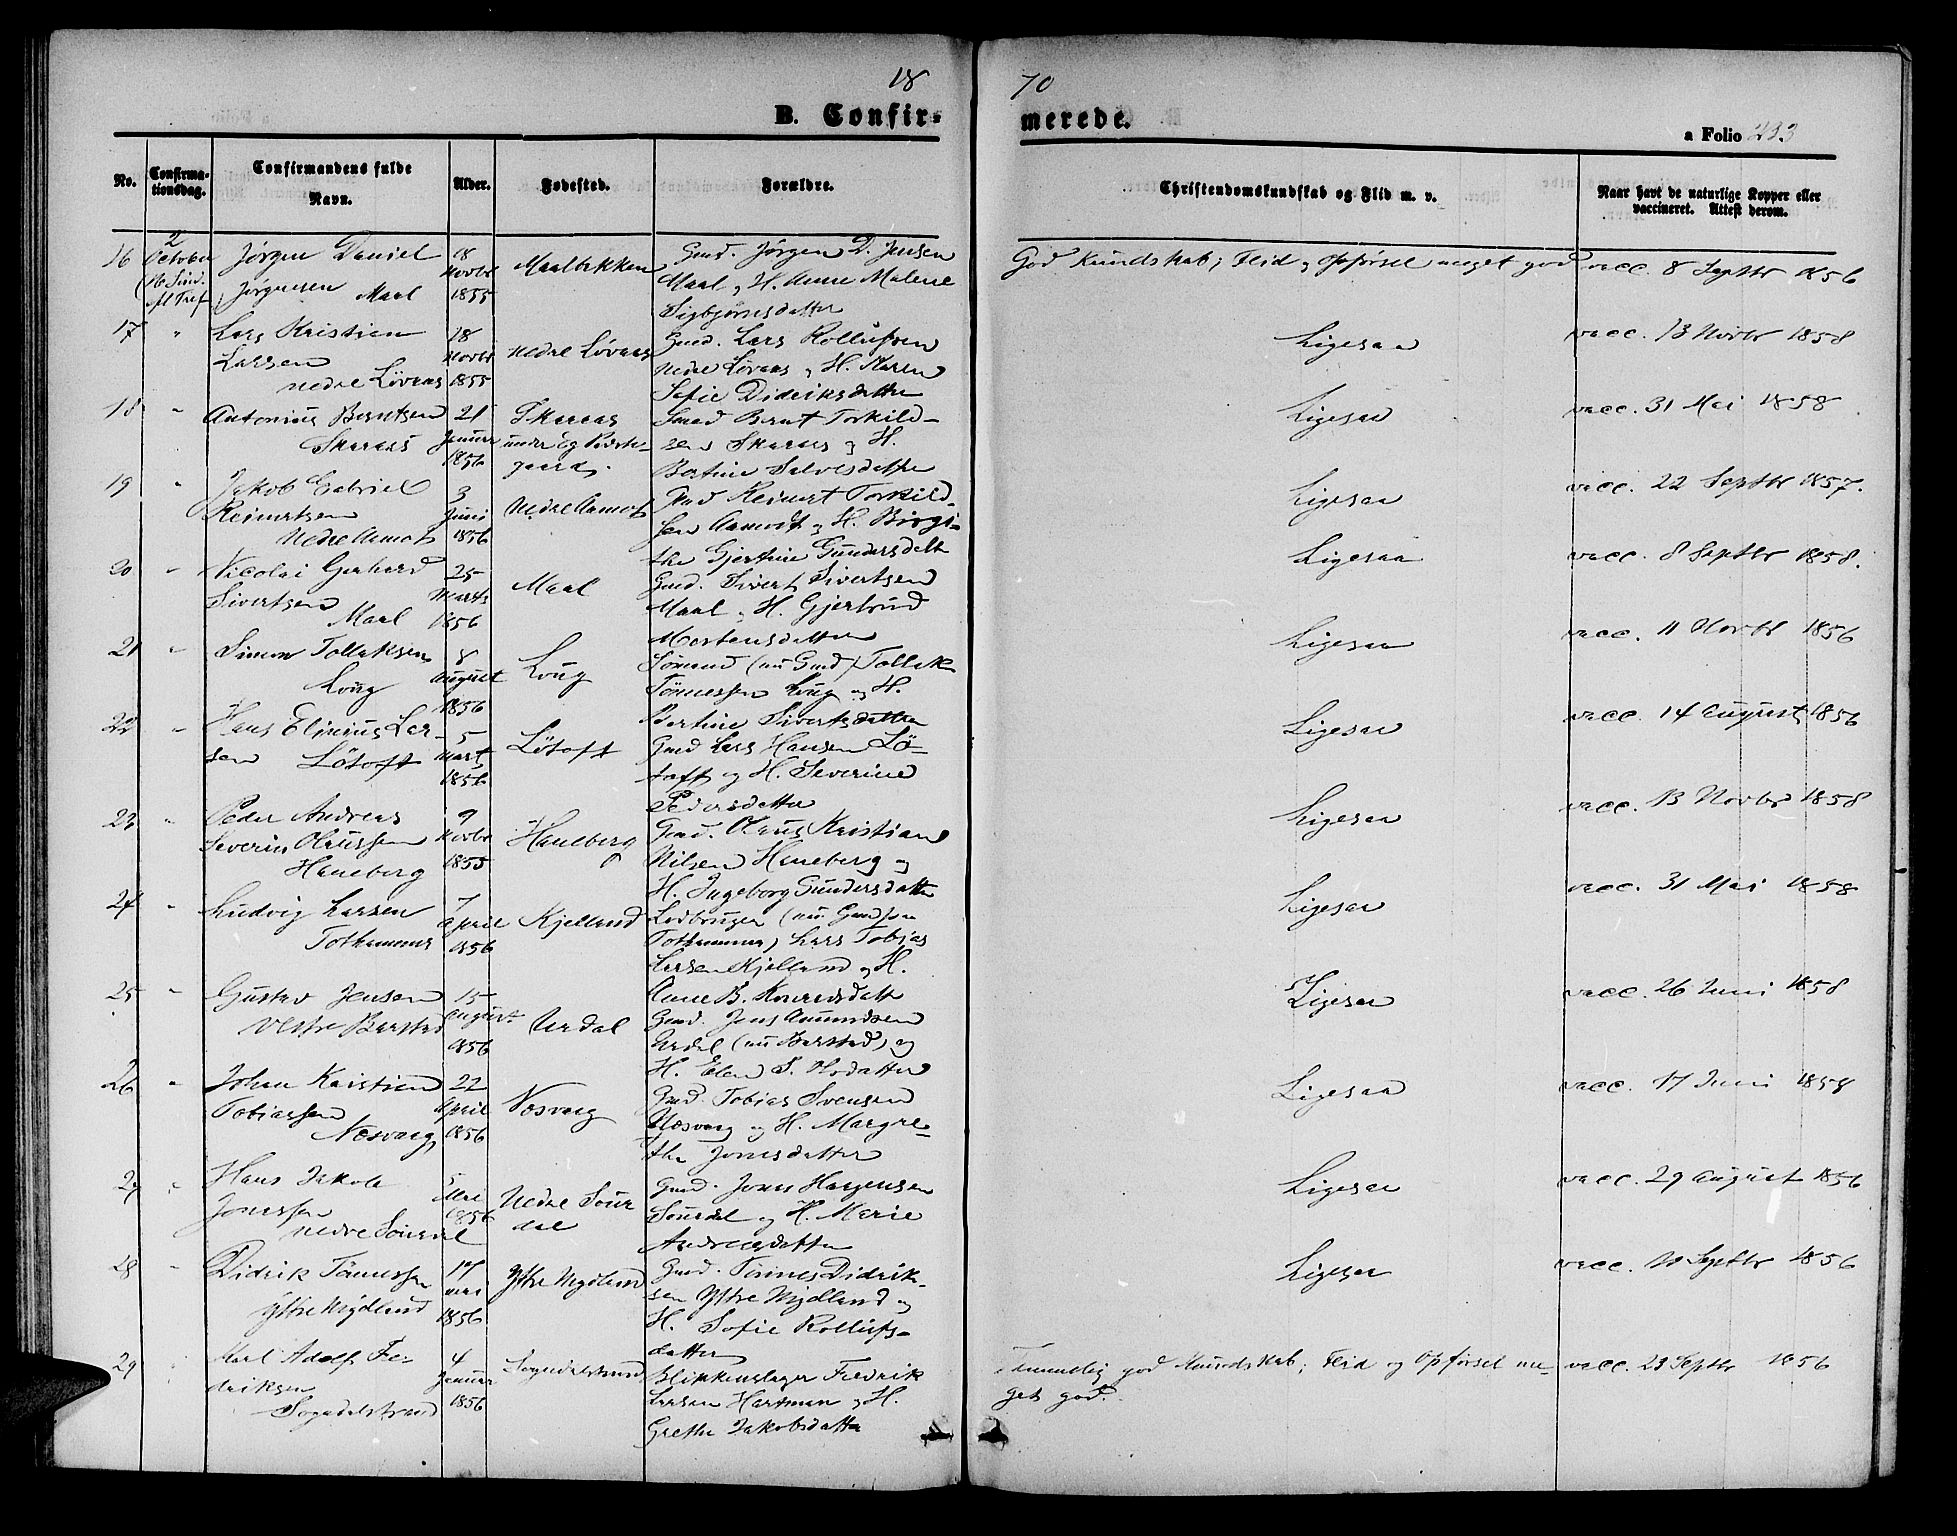 18 70
B. Confir- merede.
a Folio 233
No.
Confirma-
tionsdag.
Confirmandens fulde
Navn.
Alder.
Fødested.
Forældre.
Christendomskundskab og Flid m. v.
Naar havt de naturlige Kopper eller
vaccineret. Attest derom.
16
2
October
16 Sønd.
Jörgen Daniel
Jörgensen
Maal
18
Novbr
1855
Maalbekken
Gmd. Jörgen D. Jensen
Maal og H. Anne Malene
Sigbjörnsdatter
God Kundskab; Flid og Opførsel meget god
vacc. 8 Septbr 1856
17 "
Lars Kristian
Larsen
nedre Lövaas
18
Novbr
1855
nedre Lövaas
Gmd. Lars Rollufsen
nedre Lövaas og H. Karen
Sofie Didriksdatter
Ligesaa
vacc. 13 Novbr 1858
18 "
Antonius Berntsen
Skaraas
21
Januar
1856
Skaraas
under Eg Præste-
gaard.
Gmd Bernt Torkild-
sen Skaraas og H.
Bertine Salvesdatter
Ligesaa
vacc. 31 Mai 1858
19 "
Jakob Gabriel
Reinertsen
Nedre Aamot
3
Juni
1856
Nedre Aamot
Gmd Reinert Torkild-
sen Aamodt og H. Birgi-
the Gjertine Gundersdatt
Ligesaa
vacc. 22 Septbr 1857.
20 "
Nicolai Gerhard
Sivertsen
Maal
25
Marts
1856
Maal
Gmd. Sivert Sivertsen
Maal og H. Gjertrud
Mortensdatter
Ligesaa
vacc. 8 Septbr 1858.
21 "
Simon Tollaksen
Loug
8
August
1856
Loug
Sömand (nu Gmd) Tollak
Tönnessen Loug og H.
Bertine Sivertsdatter
Ligesaa
vacc. 11 Novbr 1856
22 "
Hans Elinius Lar-
sen Lötoft
5
Marts
1856
Lötoft
Gmd Lars Hansen Lö-
toft og H. Severine
Pedersdatter
Ligesaa
vacc. 14 August 1856
23 "
Peder Andreas
Severin Olaussen
Haneberg
9
Novbr
1855
Haneberg
Gmd. Olaus Kristian
Nilsen Haneberg og
H. Ingeborg Gundersdatter
Ligesaa
vacc. 13 Novbr 1858
24 "
Ludvig Larsen
Tothammer
7
April
1856
Kjelland
(nu Gmd paa
Tothammer) Lars Tobias
Larsen Kjelland og H.
Anne B. Konradsdatt
Ligesaa
vacc. 31 Mai 1858
25 "
Gustav Jensen
Vestre Barstad
15
August
1856
Aardal
Gmd. Jens Aamundsen
Aardal (nu Barstad) og
H. Elen S. Olsdatter
Ligesaa
vacc. 26 Juni 1858
26 "
Johan Kristian
Tobiassen
Næsvaag
22
April
1856
Næsvaag
Gmd. Tobias Svensen
Næsvaag og H. Margre-
the Jonasdatter
Ligesaa
vacc. 17 Juni 1858
27 "
Hans Jakob
Jonassen
nedre Sourdal
5
Mai
1856
Nedre Sour
dal
Gmd. Jonas Hansensen
Sourdal og H. Marie
Andreasdatter
Ligesaa
vacc. 29 August 1856
28 "
Didrik Tönnessen
Ystre Mydland
17
Mai
1856
Ystre Mydland
Gmd. Tönnes Didrik-
sen Ystre Mydland og
H. Sofie Rollufs-
datter
Ligesaa
vacc. 10 Septbr 1856
29 "
Karl Adolf Fe-
driksen
Sogndalstrand
4
Januar
1856
Sogndalstrand
Blikkenslager Fredrik
Larsen Hartman og H.
Grethe Jakobsdatter
Temmelig god Kundskab; Flid og Opførsel me-
get god.
vacc. 23 Septbr 1856